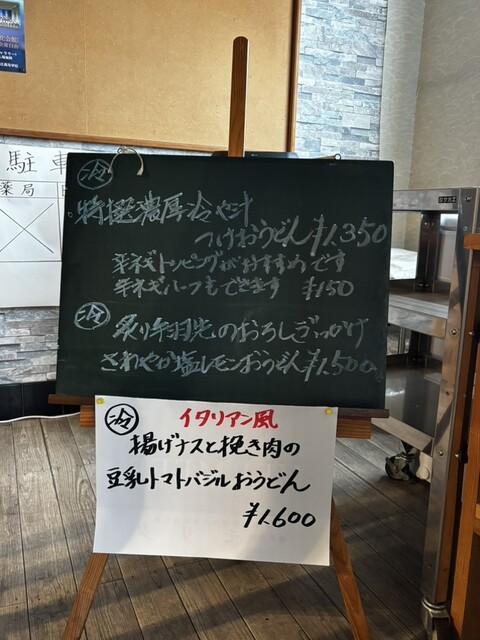 駐車
薬局
冷
特撰濃厚冷や汁
つけおうどん ¥1,350
平ネギトッピングがおすすめです
平ネギハーフもできます ¥150
冷
炙り手羽先のおろしぶっかけ
さわやか塩レモンおうどん ¥1,500
冷 イタリアン風
揚げナスと挽き肉の
豆乳トマトバジルおうどん
¥1,600